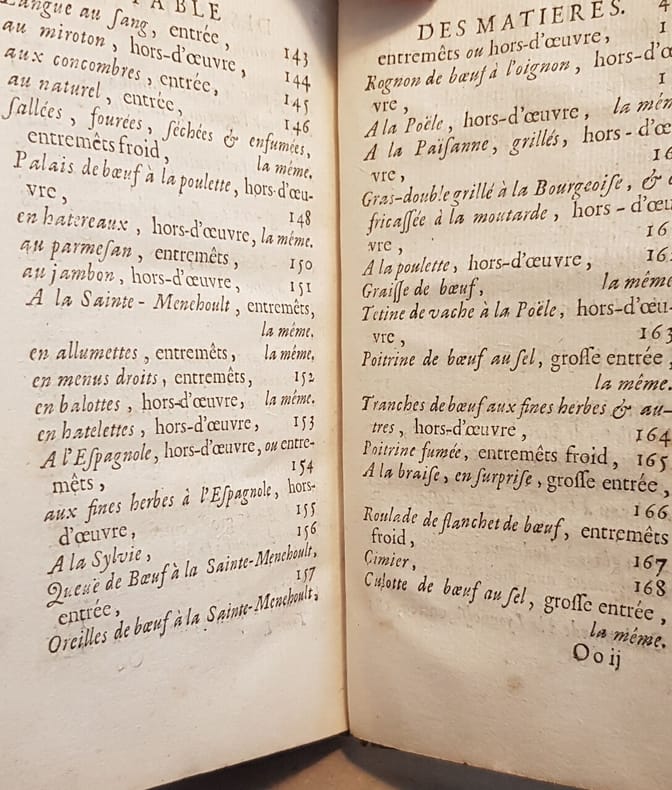 TABLE
Langue au ſang, entrée, 143
au miroton, hors-d'œuvre, 144
aux concombres, entrée, 145
au naturel, entrée, 146
ſallées, fourées, ſéchées & enfumées,
entremêts froid, la même.
Palais de bœuf à la poulette, hors-d'œu-
vre, 148
en hatereaux, hors-d'œuvre, la même.
au parmeſan, entremêts, 150
au jambon, hors-d'œuvre, 151
A la Sainte-Menehoult, entremêts,
la même.
en allumettes, entremêts, la même.
en menus droits, entremêts, 152
en balottes, hors-d'œuvre, la même.
en hatelettes, hors-d'œuvre, 153
A l'Eſpagnole, hors-d'œuvre, ou entre-
mêts, 154
aux fines herbes à l'Eſpagnole, hors-
d'œuvre, 155
A la Sylvie, 156
Queuë de Bœuf à la Sainte-Menehoult,
entrée, 157
Oreilles de bœuf à la Sainte-Menehoult,
DES MATIERES. 4
entremêts ou hors-d'œuvre, 1
Rognon de bœuf à l'oignon, hors-d'œ
vre, 1
A la Poële, hors-d'œuvre, la mêm
A la Païſanne, grillés, hors-d'œ
vre, 16
Gras-double grillé à la Bourgeoiſe, &
fricaſſée à la moutarde, hors-d'œu
vre, 16
A la poulette, hors-d'œuvre, 16
Graiſſe de bœuf, la même
Tetine de vache à la Poële, hors-d'œu-
vre, 163
Poitrine de bœuf au ſel, groſſe entrée,
la même.
Tranches de bœuf aux fines herbes & au-
tres, hors-d'œuvre, 164
Poitrine fumée, entremêts froid, 165
A la braiſe, en ſurpriſe, groſſe entrée,
166
Roulade de flanchet de bœuf, entremêts
froid, 167
Cimier, 168
Culotte de bœuf au ſel, groſſe entrée,
la même.
Oo ij